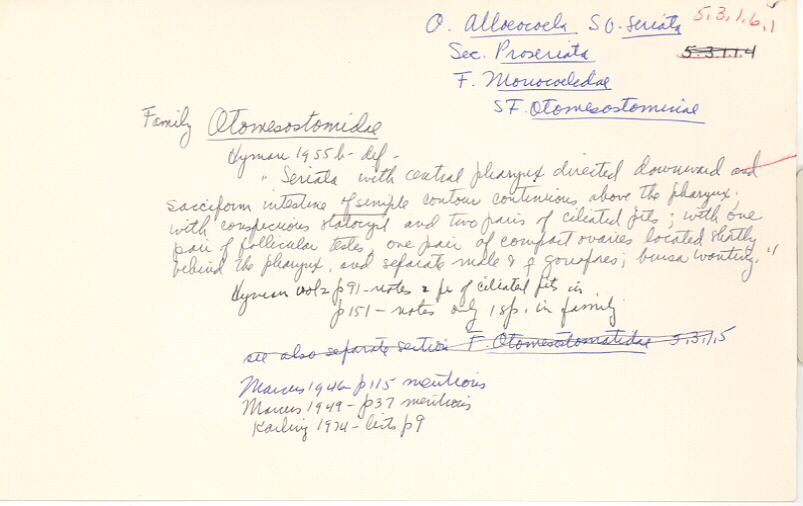 O. Alloeocoela SO. Seriata 5.3.1.6.1
Sec. Proseriata 5.3.1.1.4
F. Monocoelidae
SF. Otomesostominae
Family Otomesostomidae
Hyman 1955b - def -
"Seriata with central pharynx directed downward and
sacciform intestine of simple contour continuous above the pharynx;
with conspicuous statocyst and two pairs of ciliated pits; with one
pair of follicular testes, one pair of compact ovaries located shortly
behind the pharynx, and separate male & ♀ gonopores; bursa wanting."
Hyman vol 2 p91 - notes 2 pr of ciliated pits in
p151 - notes only 1 sp. in family
see also separate section F. Otomesostomatidae 5.3.1.5
Marcus 1946 - p115 mentions
Marcus 1949 - p37 mentions
Karling 1974 - lists p9